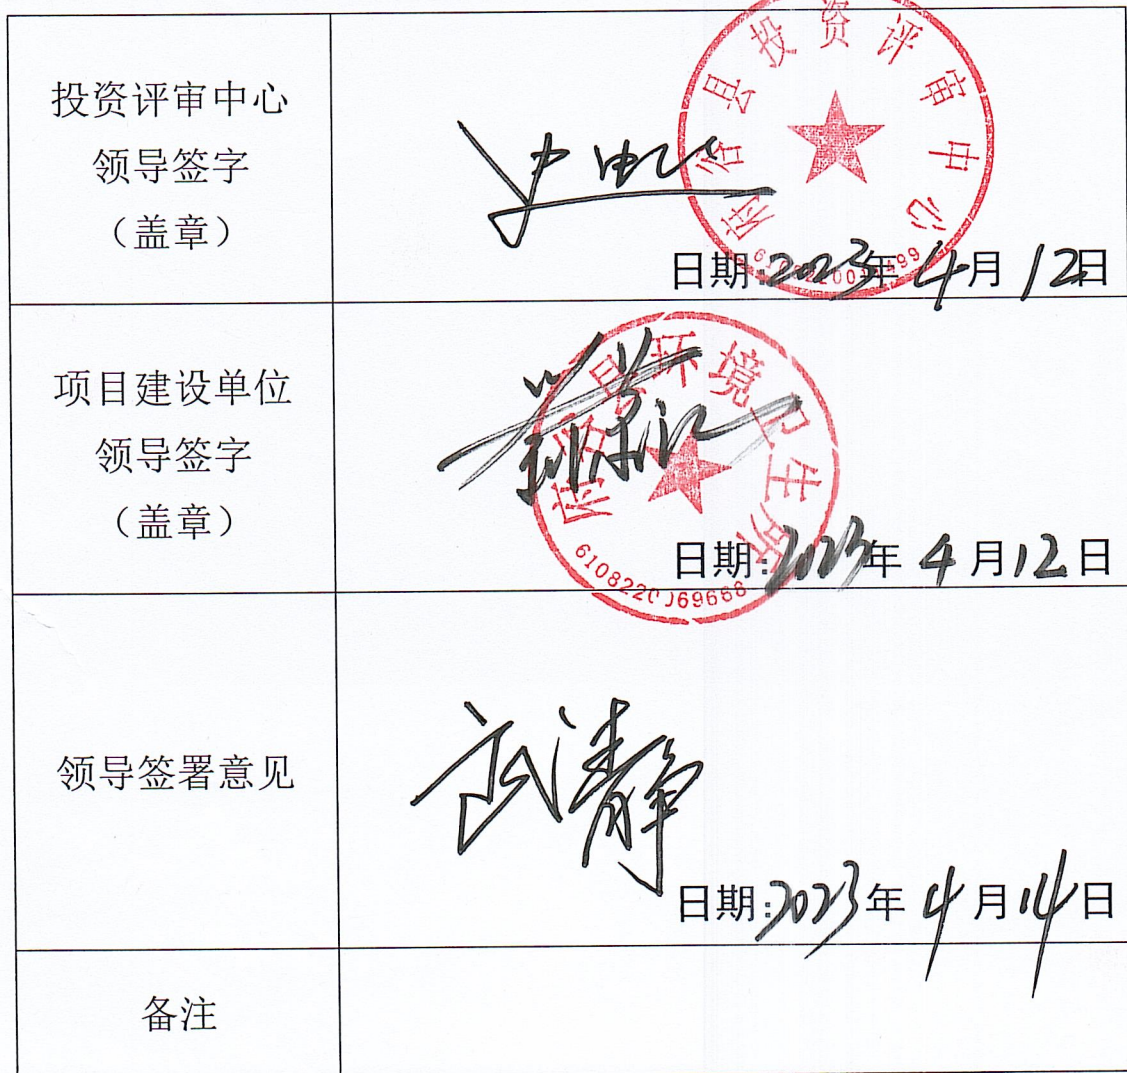 投资评审中心
领导签字
（盖章）
府谷县投资评审中心
日期:2023年4月12日
项目建设单位
领导签字
（盖章）
府谷县环境卫生所
日期:2023年4月12日
领导签署意见
武清静
日期:2023年4月14日
备注